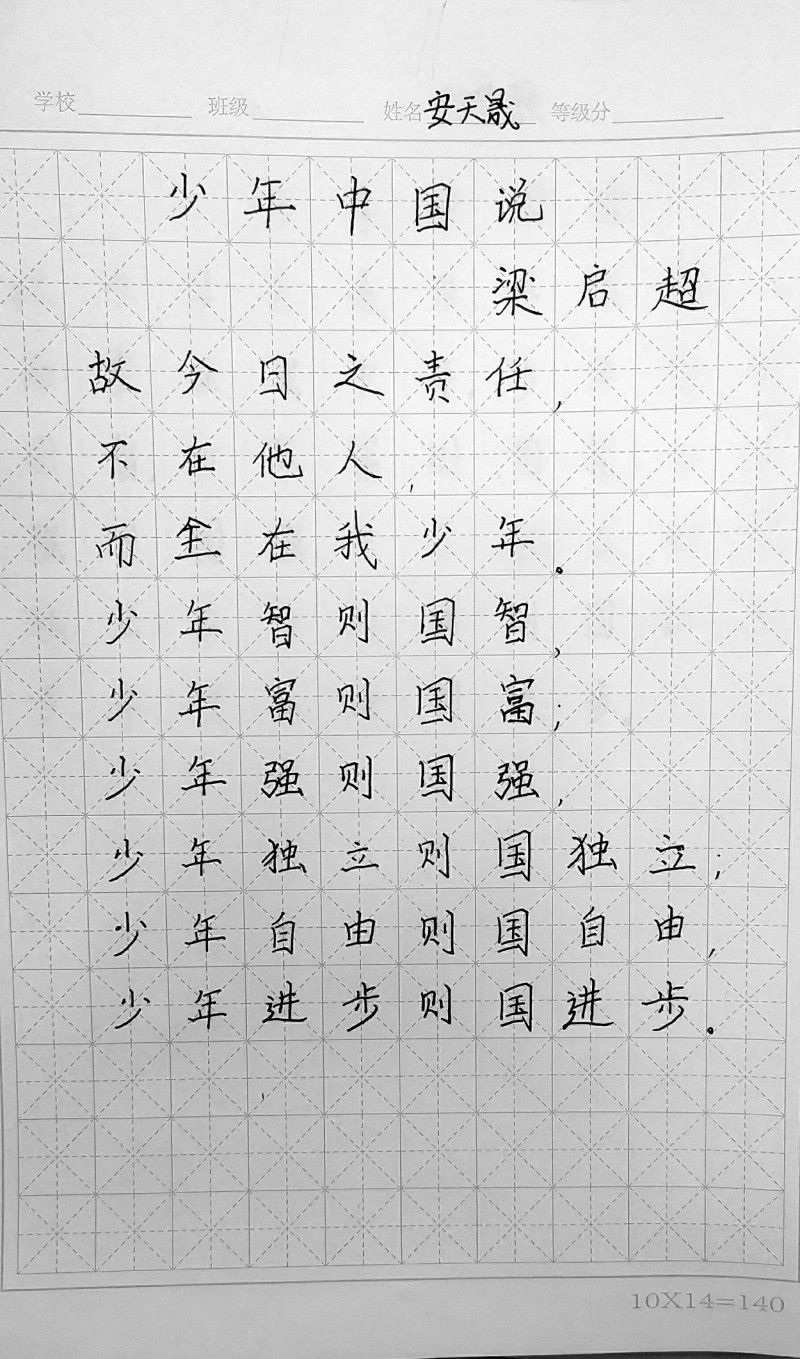 学校 班级 姓名 安天晟 等级分
少年中国说
梁启超
故今日之责任,
不在他人,
而全在我少年。
少年智则国智,
少年富则国富;
少年强则国强,
少年独立则国独立;
少年自由则国自由,
少年进步则国进步。
10X14=140